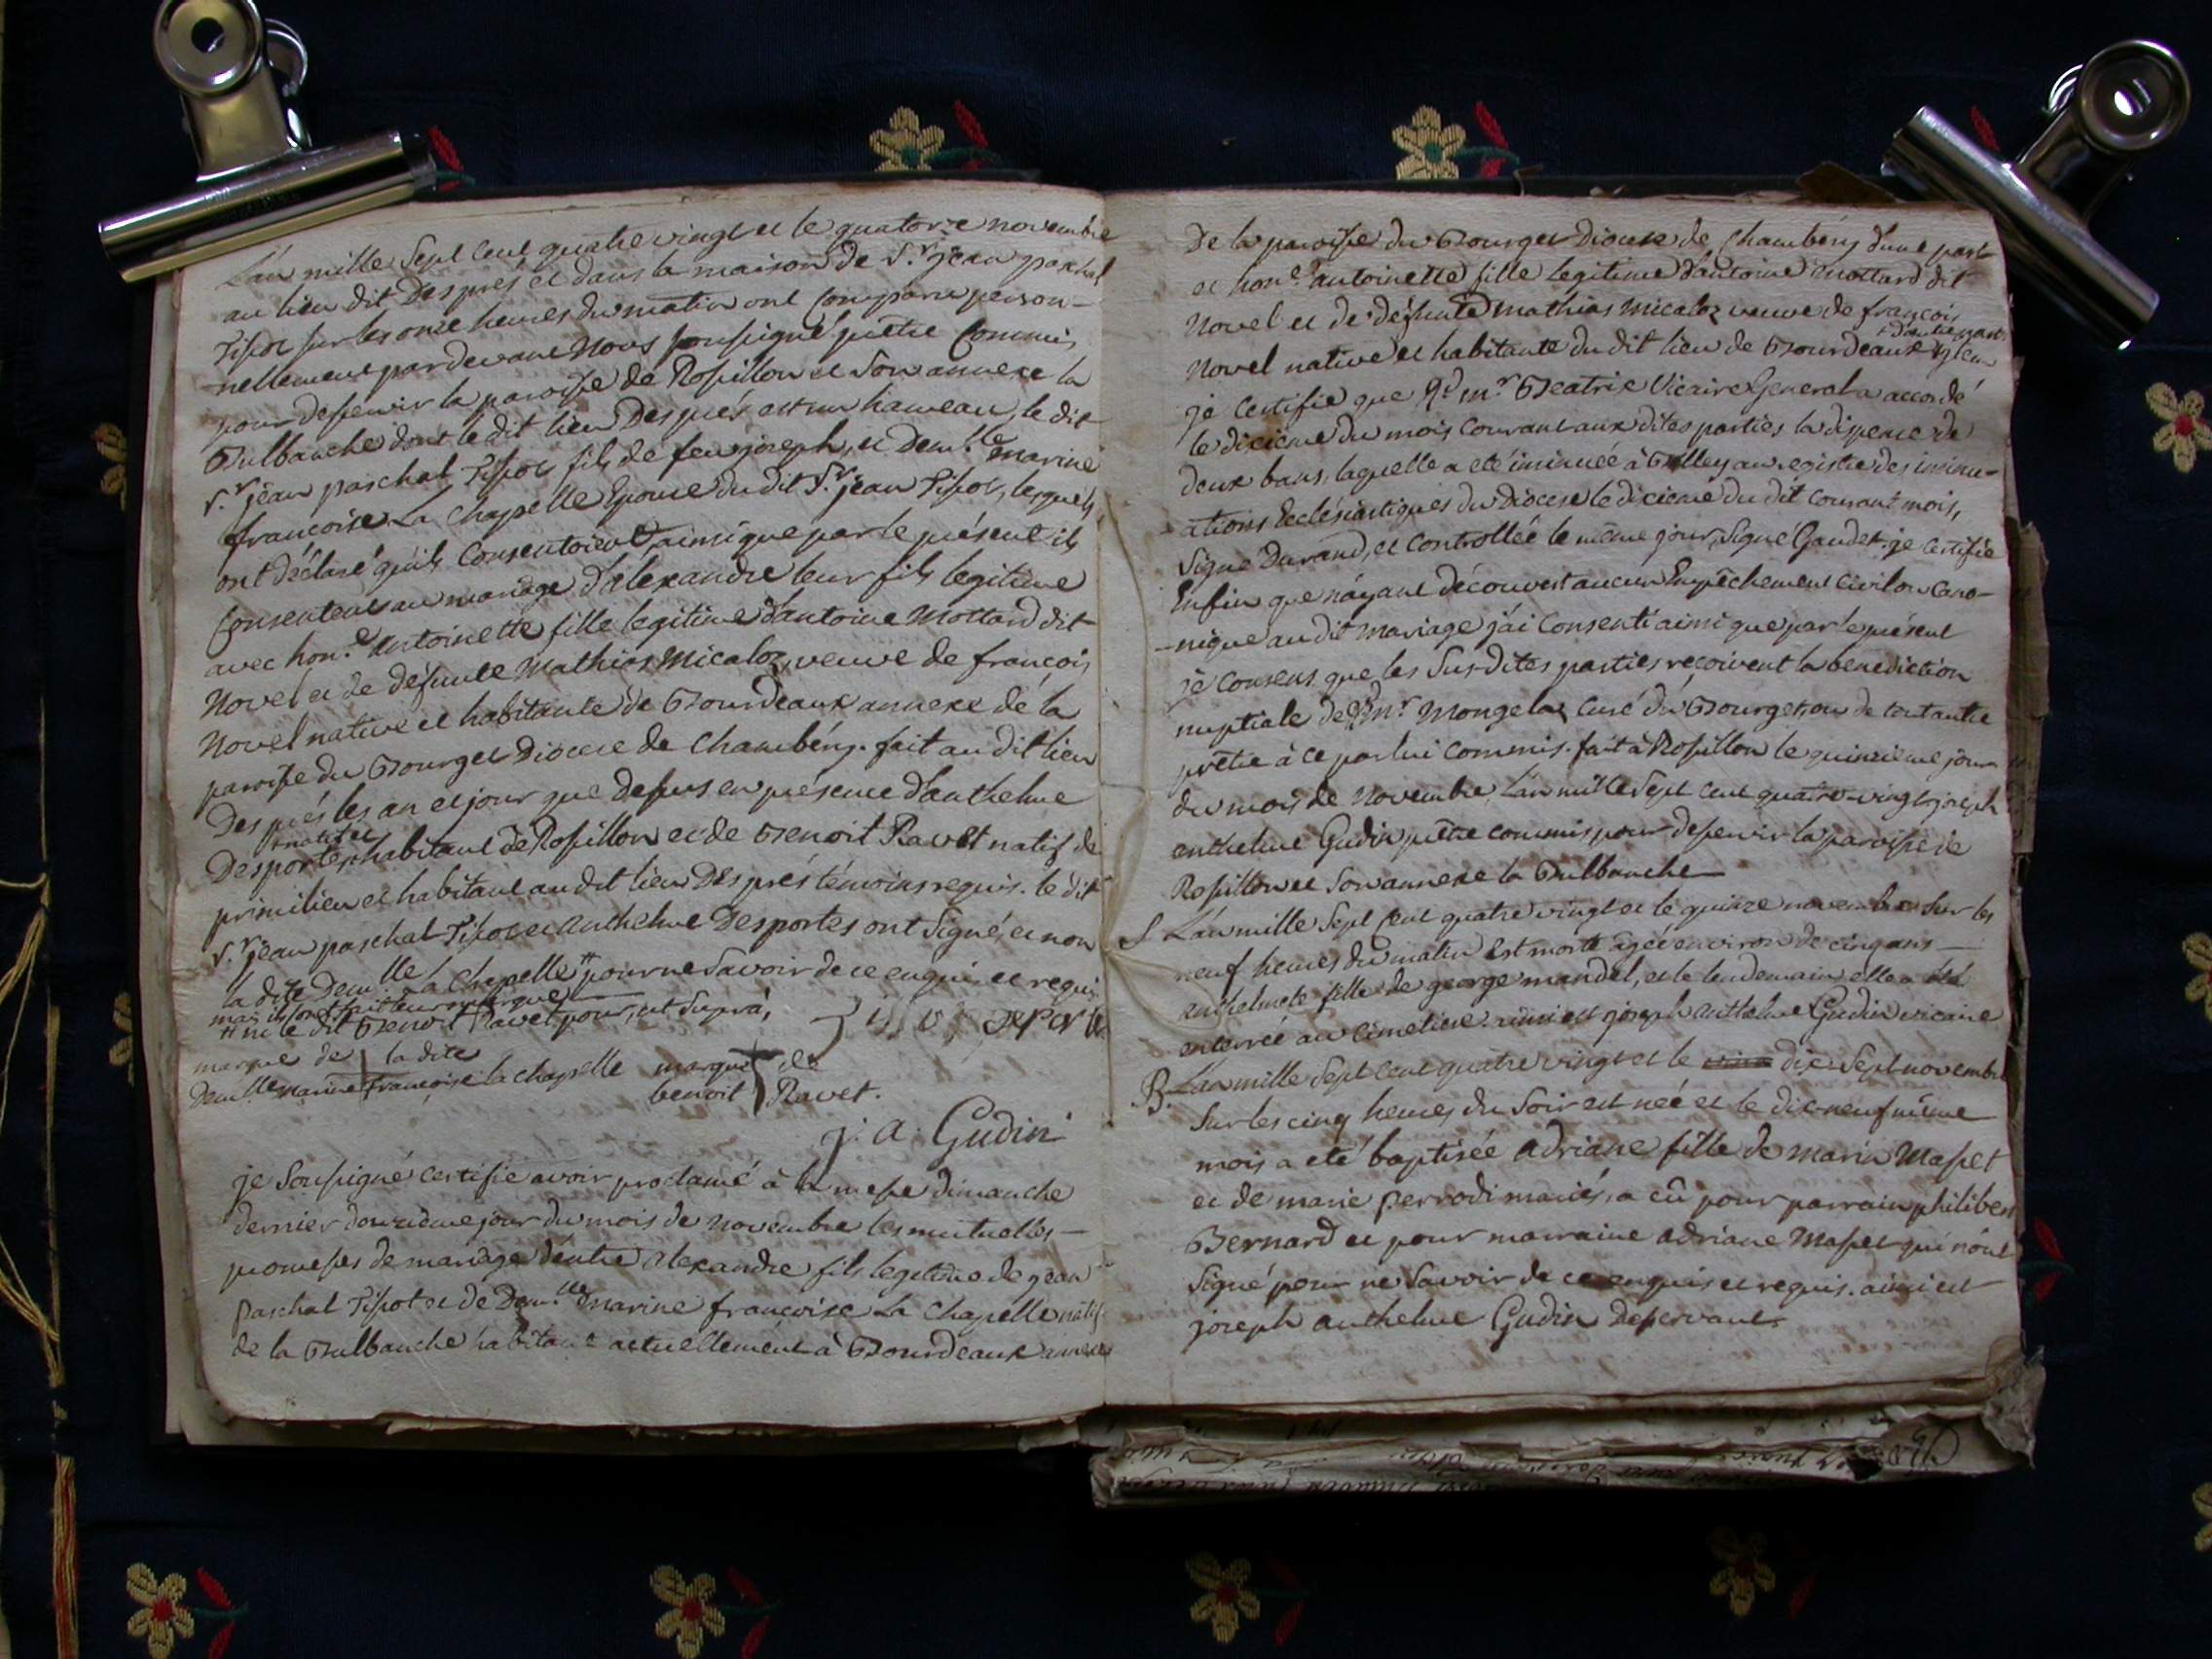 L'an mille Sept Cent quatre vingt et le quatorze novembre
au lieu dit Des prés et dans la maison de S.r jean paschal
Tissot sur les onze heures du matin ont Comparu person-
nellement pardevant Nous soussigné prêtre Commis
pour desservir la paroisse de Rossillon et Son annexe la
Bulbanche dont le dit lieu Des prés est un hameau, le dit
S.r jean paschal Tissot fils de feu joseph, et Dem.lle marine
francoise La Chapelle Epouse du dit S.r jean Tissot, lesquels
ont déclaré qu'ils Consentoient, ainsi que par le présent ils
Consentent au mariage d'alexandre leur fils legitime
avec hon.e Antoinette fille legitime d'antoine Mottard dit
Novel et de défunte Mathias Micaloz veuve de francois
Novel native et habitante de Bourdeaux annexe de la
paroisse du Bourget Diocese de Chambéry. fait au dit lieu
Des prés les an et jour que dessus en présence d'anthelme
+ natif et
Desportes + habitant de Rossillon et de Benoit Ravet natif de
primilieu et habitant au dit lieu Des prés témoins requis. le dit
S.r jean paschal Tissot et Anthelme Desportes ont Signé, et non
la dite Dem.lle La Chapelle # pour ne Savoir de ce enquis et requis
mais ils ont fait leur marque
# ni le dit Benoit Ravet pour, ut Supra,
marque de la dite
Dem.lle marine francoise la chapelle marque de
benoit Ravet.
j. a. Gudin
je Soussigné certifie avoir proclamé à la messe dimanche
dernier douzième jour du mois de Novembre les mutuelles
promesses de mariage d'entre alexandre fils legitime de jean
paschal Tissot et de Dem.lle marine françoise La Chapelle natif
de la Bulbanche habitant actuellement à Bourdeaux annexe
De la paroisse du Bourget Diocese de Chambéry d'une part
et hon.e antoinette fille legitime d'antoine Mottard dit
Novel et de défunte Mathias Micaloz veuve de francois
+ d'autre part
Novel native et habitante du dit lieu de Bourdeaux +
je Certifie que R.d m.r Beatrix Vicaire General a accordé
le dixieme du mois Courant aux dites parties la dispence de
deux bans, laquelle a eté insinuée à Belley au registre des insinu-
ations Ecclésiastiques du Diocese le dixieme du dit Courant mois,
Signé Durand, et Controllée le même jour, Signé Gaudet. je certifie
Enfin que n'ayant découvert aucun Empêchement Civil ou Cano-
-nique au dit Mariage j'ai Consenti ainsi que par le présent
je Consens que les Sus-dites parties reçoivent la bénédiction
nuptiale de R.d M.r Mongelaz Curé du Bourget, ou de tout autre
prêtre à ce par lui Commis. fait à Rossillon le quinzieme jour
du mois de Novembre L'an mille Sept cent quatre-vingt joseph
enthelme Gudin prêtre commis pour desservir la paroisse de
Rossillon et Son annexe la Bulbanche
S L'an mille Sept Cent quatre vingt et le quinze novembre Sur les
neuf heures du matin Est morte agée environ de cinq ans
anthelmete fille de george mandel, et le lendemain elle a été
enterrée au cimetiere. ainsi est joseph anthelme Gudin vicaire
B. L'an mille Sept cent quatre vingt et le dix Sept novembre
Sur les cinq heures du Soir est née et le dix-neuf même
mois a eté baptisée Adriane fille de Marin Masset
et de marie perrodi mariés, a eû pour parrain philibert
Bernard et pour marraine adriane Masset qui n'ont
Signé pour ne Savoir de ce enquis et requis. ainsi est
joseph anthelme Gudin desservant